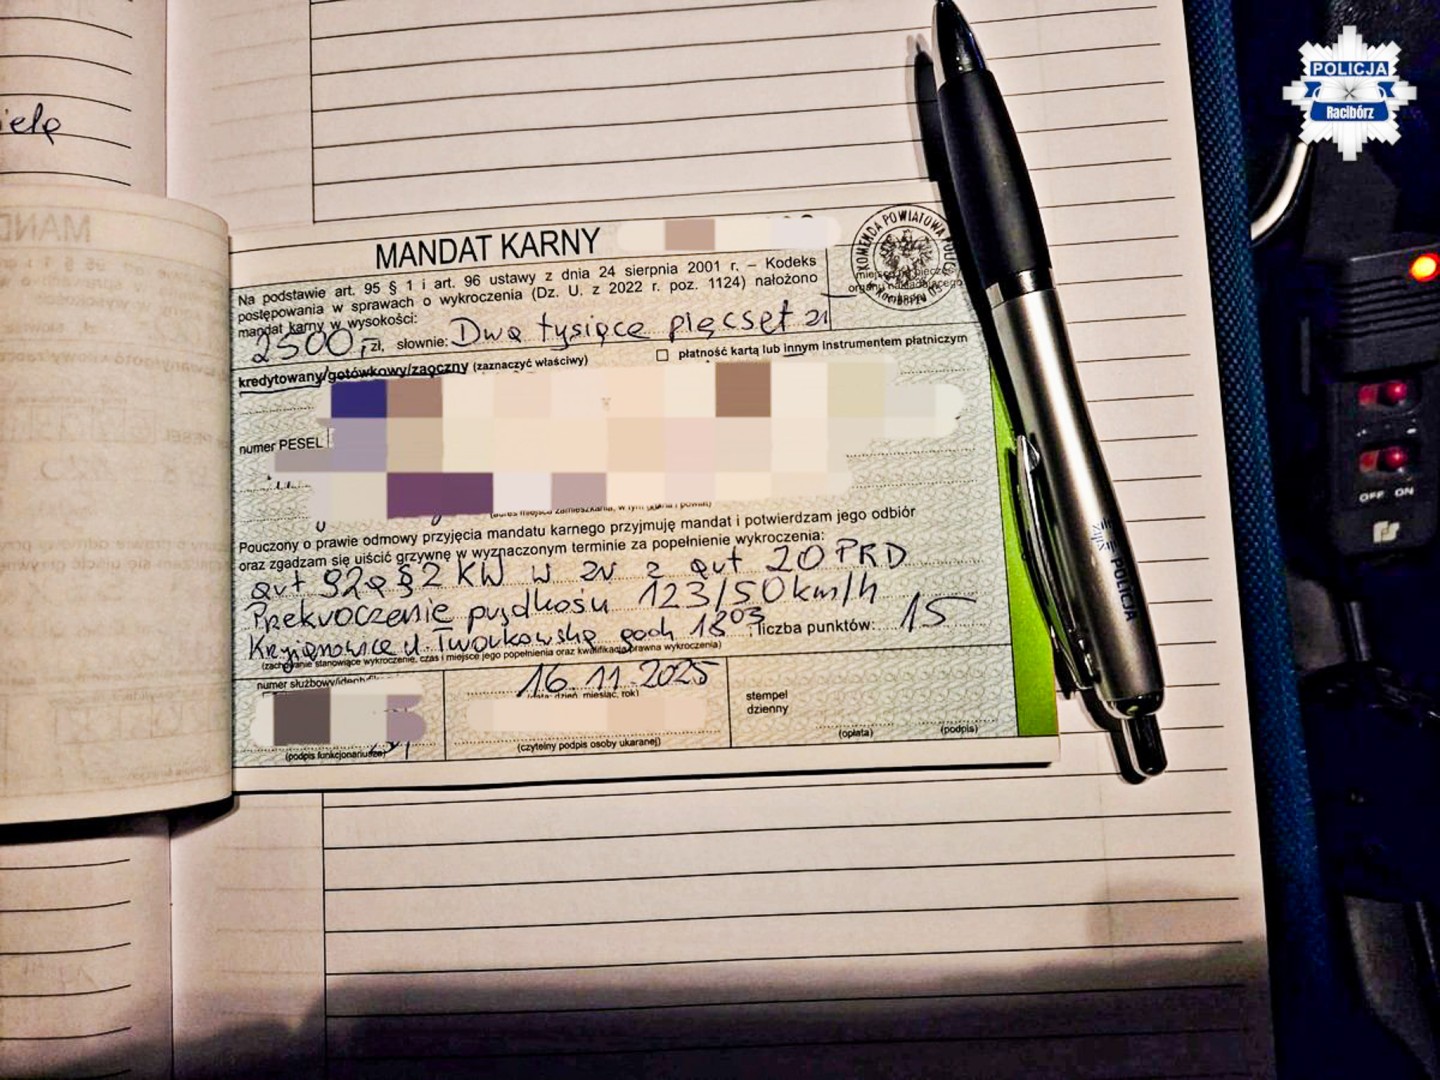 POLICJA
Racibórz
MANDAT KARNY
KOMENDA POWIATOWA
miejsce na pieczęć
organu nakładającego
Na podstawie art. 95 § 1 i art. 96 ustawy z dnia 24 sierpnia 2001 r. – Kodeks
postępowania w sprawach o wykroczenia (Dz. U. z 2022 r. poz. 1124) nałożono
mandat karny w wysokości:
2500,- zł, słownie: Dwa tysiące pięćset zł
kredytowany/gotówkowy/zaoczny (zaznaczyć właściwy)
płatność kartą lub innym instrumentem płatniczym
numer PESEL
(adres miejsca zamieszkania, w tym gmina i powiat)
Pouczony o prawie odmowy przyjęcia mandatu karnego przyjmuję mandat i potwierdzam jego odbiór
oraz zgadzam się uiścić grzywnę w wyznaczonym terminie za popełnienie wykroczenia:
art 92a § 2 KW w zw z art 20 PRD
Przekroczenie prędkości 123/50 km/h
Krzyżanowice ul. Tworkowska godz 18 03, liczba punktów: 15
(zachowanie stanowiące wykroczenie, czas i miejsce jego popełnienia oraz kwalifikacja prawna wykroczenia)
numer służbowy/identyfik
16.11.2025
(data: dzień, miesiąc, rok)
stempel
dzienny
(podpis funkcjonariusza)
(czytelny podpis osoby ukaranej)
(opłata)
(podpis)
POLICJA
OFF ON